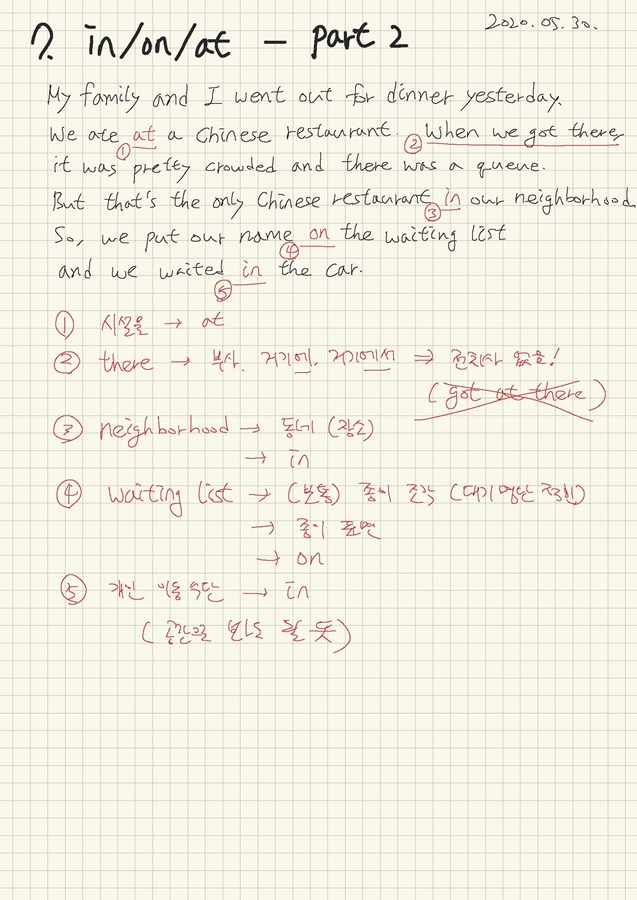 2020.05.30.
7. in/on/at - part 2
My family and I went out for dinner yesterday.
We ate at a Chinese restaurant. When we got there,
① ②
it was pretty crowded and there was a queue.
But that's the only Chinese restaurant in our neighborhood.
③
So, we put our name on the waiting list
④
and we waited in the car.
⑤
① 시설물 → at
② there → 부사. 거기에, 거기에서 ⇒ 전치사 없음!
(got at there)
③ neighborhood → 동네 (장소)
→ in
④ waiting list → (보통) 종이 조각 (대기 명단 적힌)
→ 종이 표면
→ on
⑤ 개인 이동 수단 → in
(공간으로 봐도 될 듯)